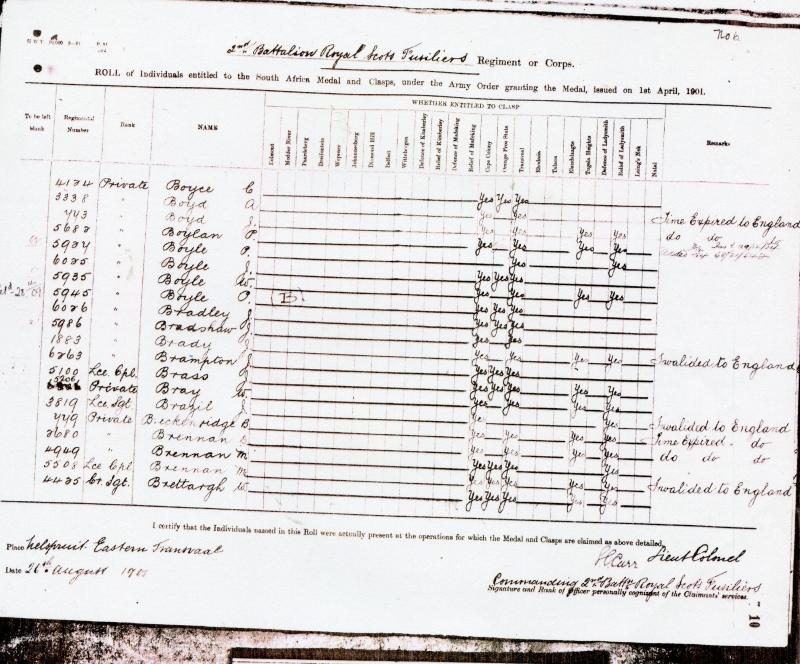 No 6
2nd Battalion Royal Scots Fusiliers Regiment or Corps.
ROLL of Individuals entitled to the South Africa Medal and Clasps, under the Army Order granting the Medal, issued on 1st April, 1901.
WHETHER ENTITLED TO CLASP
To be left blank Regimental Number Rank NAME Belmont Modder River Paardeberg Dreifontein Wepener Johannesburg Diamond Hill Belfast Wittebergen Defence of Kimberley Relief of Kimberley Defence of Mafeking Relief of Mafeking Cape Colony Orange Free State Transvaal Rhodesia Talana Elandslaagte Tugela Heights Defence of Ladysmith Relief of Ladysmith Laing's Nek Natal Remarks
4124 Private Boyce C Yes Yes Yes
3338 " Boyd A Yes Yes
443 " Boyd J. Yes Yes Yes Time Expired to England
5682 " Boylan P. Yes Yes Yes Yes do do
5924 " Boyle P. Yes Yes
6025 " Boyle J. Yes Yes Yes
5935 " Boyle W. Yes Yes Yes Yes
5945 " Boyle P. (B) Yes Yes Yes
6026 " Bradley J. Yes Yes Yes
5986 " Bradshaw J. Yes Yes
1883 " Brady J. Yes Yes Yes Yes
6263 " Brampton J. Yes Yes Yes Invalided to England
5100 Lce. Cpl. Brass J. Yes Yes Yes
5206 Private Bray W. Yes Yes Yes Yes
3819 Lce. Sgt. Brazil J. Yes Yes
449 Private Breckenridge B Yes Yes Yes Yes Invalided to England
3680 " Brennan Yes Yes Yes Time Expired do
4949 " Brennan M. Yes Yes Yes Yes do do do
5508 Lce Cpl Brennan M. Yes Yes Yes
4435 Cr. Sgt. Brettargh W. Yes Yes Yes Yes Yes Invalided to England
I certify that the Individuals named in this Roll were actually present at the operations for which the Medal and Clasps are claimed as above detailed.
Place Nelspruit Eastern Transvaal
Carr Lieut Colonel
Date 26th August 1901
Commanding 2nd Battn Royal Scots Fusiliers
Signature and Rank of Officer personally cognizant of the Claimants' services.
10